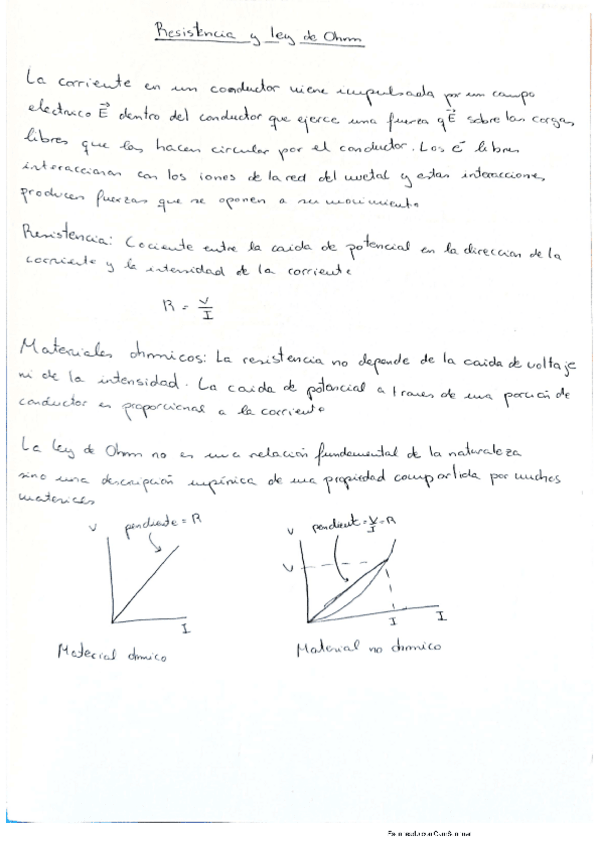 Resistencia y ley de Ohm
La corriente en un conductor viene impulsada por un campo
electrico E⃗ dentro del conductor que ejerce una fuerza qE⃗ sobre las cargas
libres que las hacen circular por el conductor. Los e⁻ libres
interaccionan con los iones de la red del metal y estas interacciones
producen fuerzas que se oponen a su movimiento.
Resistencia: Cociente entre la caida de potencial en la direccion de la
corriente y la intensidad de la corriente
R = V/I
Materiales ohmicos: La resistencia no depende de la caida de voltaje
ni de la intensidad. La caida de potencial a traves de una porción de
conductor es proporcional a la corriente
La ley de Ohm no es una relación fundamental de la naturaleza
sino una descripción empírica de una propiedad compartida por muchos
materiales
V pendiente = R
I
Material ohmico
V pendiente = V/I = R
V
I I
Material no ohmico
Escaneado con CamScanner